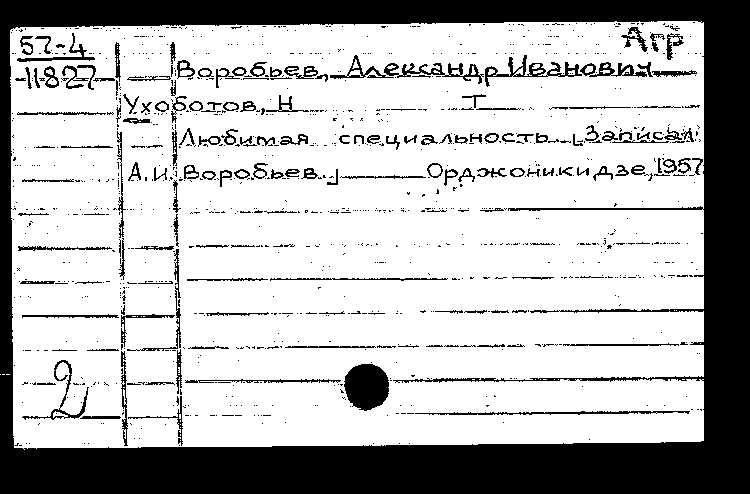 57-4
11827
Агр
Воробьев, Александр Иванович
Ухоботов, Н Т
Любимая специальность [Записал
А.И. Воробьев.] Орджоникидзе, 1957
2